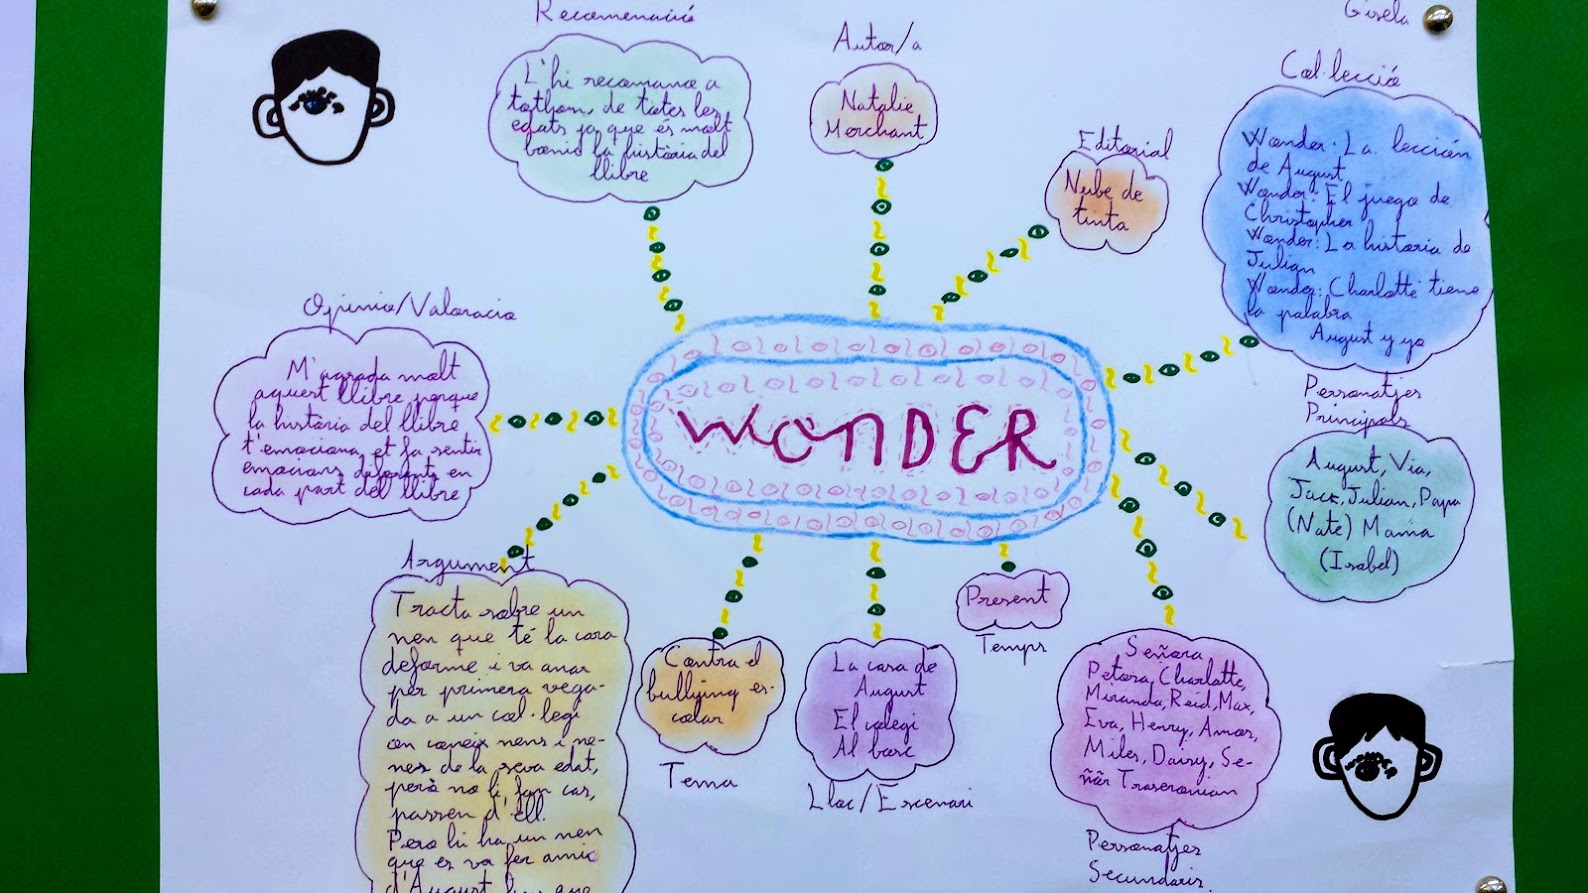 Recomenació
L'hi recomanco a
tothom, de totes les
edats ja que és molt
bonic la història del
llibre
Autor/a
Natalie
Merchant
Editorial
Nube de
tinta
Gisela
Col·lecció
Wonder: La lección
de August
Wonder: El juego de
Christopher
Wonder: La historia de
Julian
Wonder: Charlotte tiene
la palabra
August y yo
Opinio/Valoracio
M'agrada molt
aquest llibre perque
la història del llibre
t'emociona, et fa sentir
emocions diferents en
cada part del llibre
WONDER
Personatjes
Principals
August, Via,
Jack, Julian, Papa
(Nate) Mama
(Isabel)
Argument
Tracta sobre un
nen que té la cara
deforme i va anar
per primera vega-
da a un col·legi
on coneix nens i ne-
nes de la seva edat,
però no li fan cas,
passen d'ell.
Pero hi ha un nen
que es va fer amic
d'August fins que
Contra el
bullying es-
colar
Tema
La casa de
August
El colegi
Al bosc
Lloc/Escenari
Present
Temps
Señora
Petosa, Charlotte,
Miranda, Reid, Max,
Eva, Henry, Amos,
Miles, Daisy, Se-
ñor Traseronian
Personatjes
Secundaris.